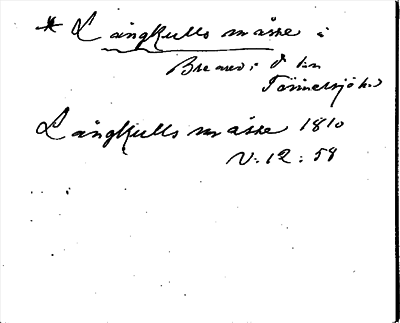 * Långkulls måsse i
Breared: s:n
Tönnersjö hd
Långkulls måsse 1810
V: 12: 58